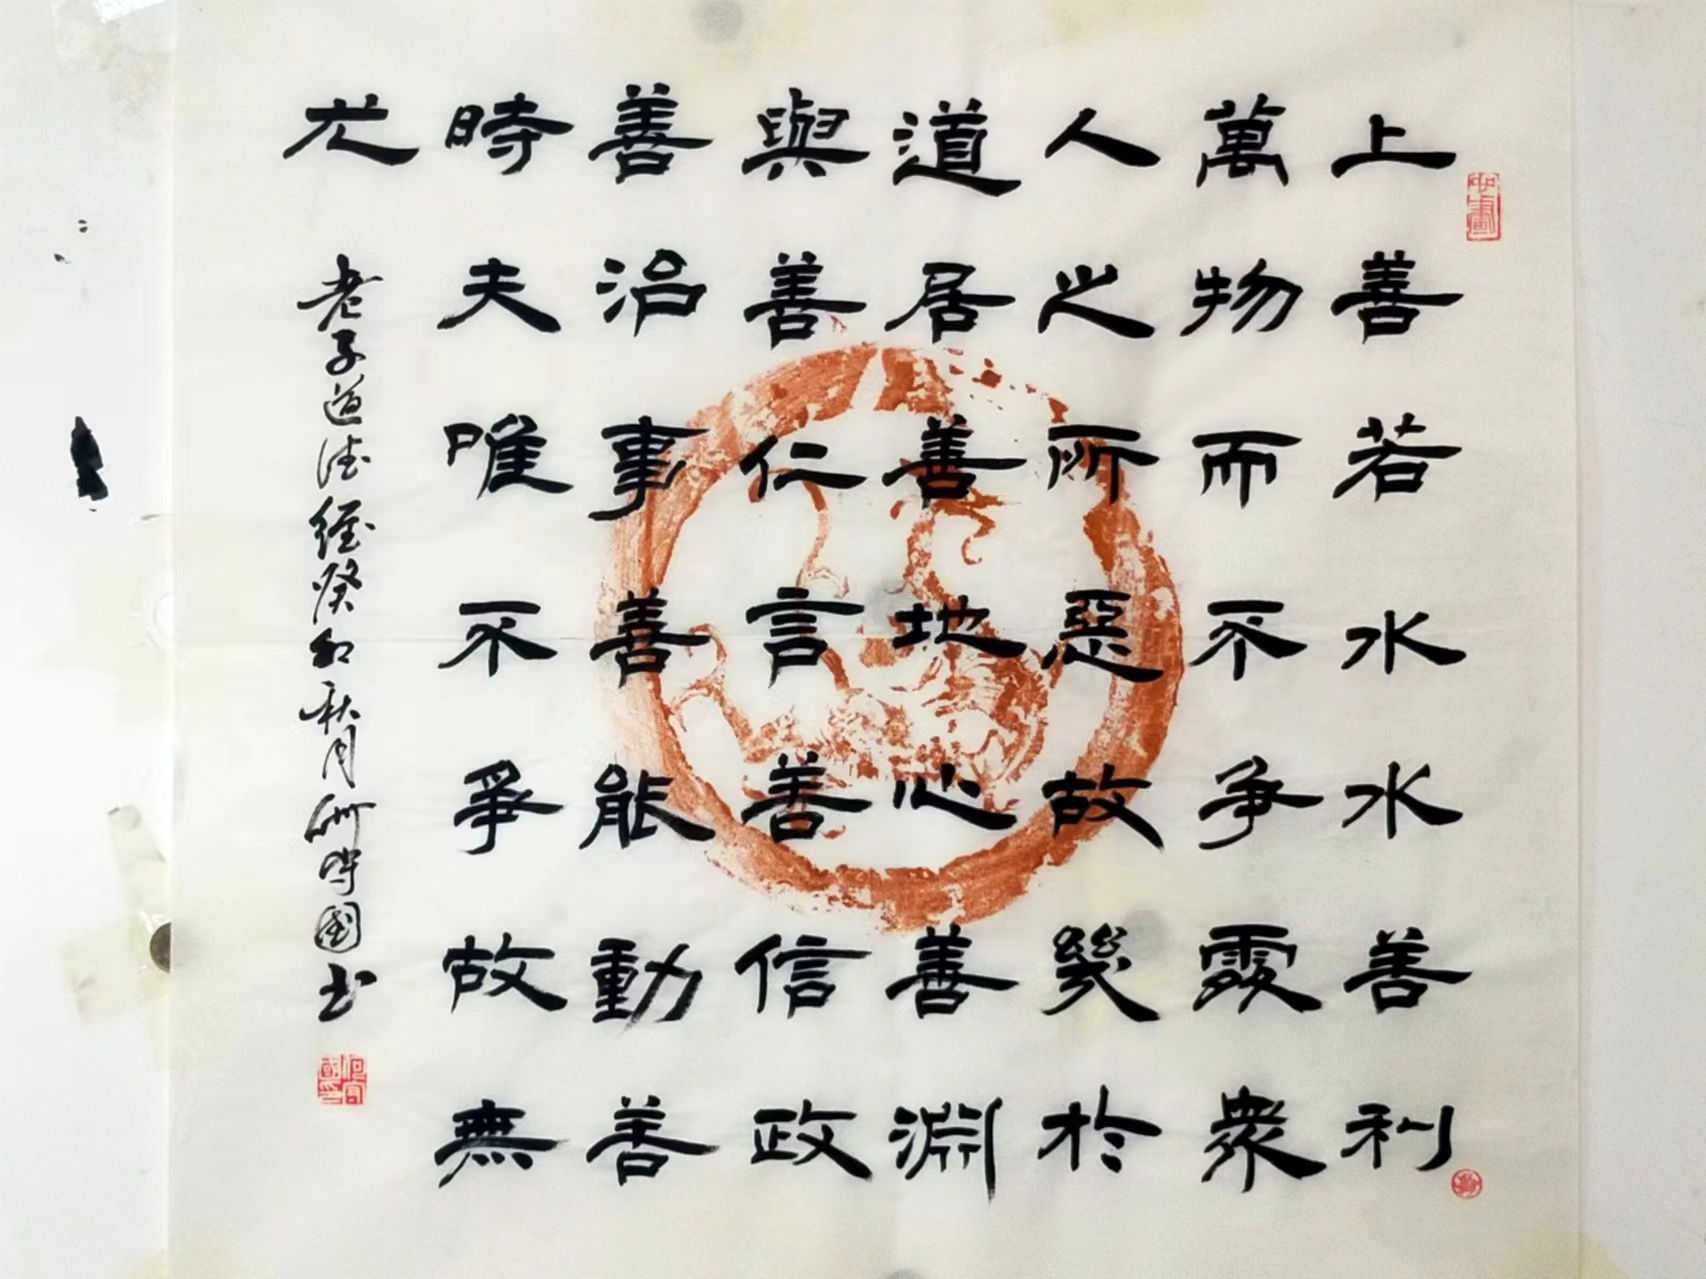 上善若水水善利
萬物而不争處衆
人之所惡故幾於
道居善地心善淵
與善仁言善信政
善治事善能動善
時夫唯不爭故無
尤
老子道德經癸卯秋月
國书